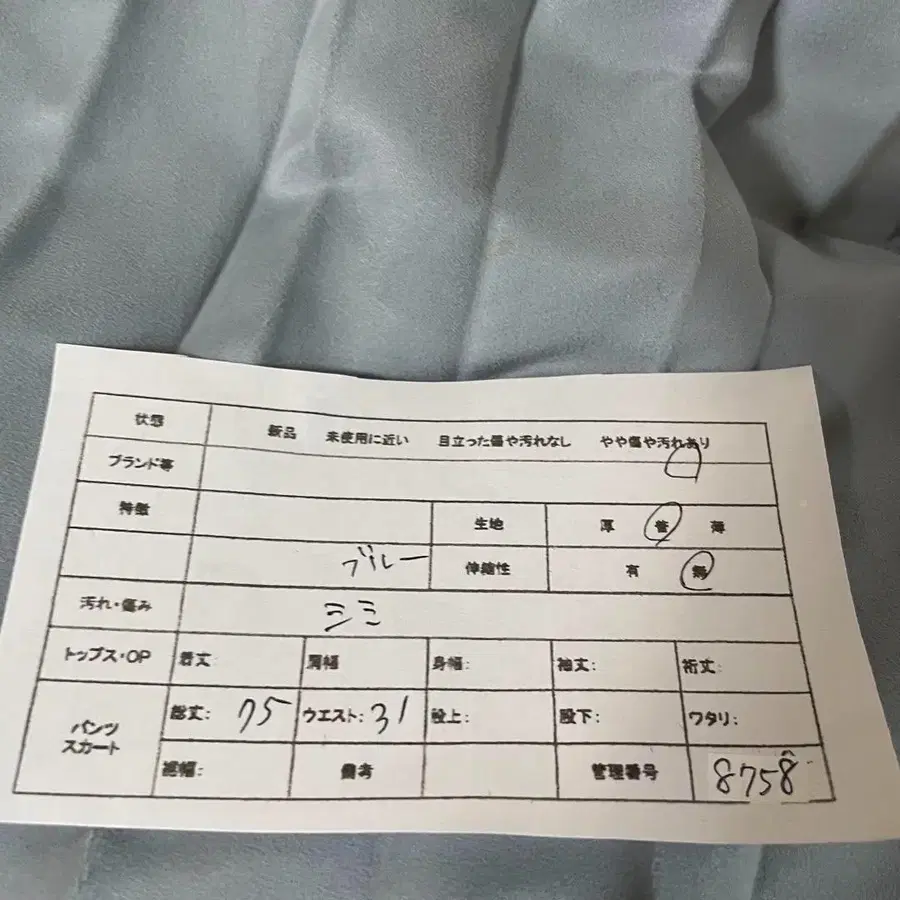 状態 新品 未使用に近い 目立った傷や汚れなし やや傷や汚れあり
ブランド等
特徴 生地 厚 普 薄
ブルー 伸縮性 有 無
汚れ・傷み シミ
トップス・OP 着丈 肩幅 身幅: 袖丈: 裄丈:
パンツ スカート 総丈: 75 ウエスト: 31 股上: 股下: ワタリ:
裾幅: 備考 管理番号 8758